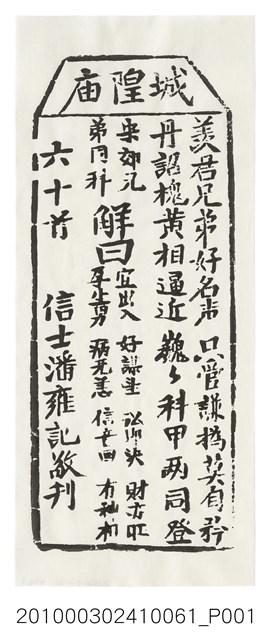 城隍庙
羨君兄弟好名声 只管謙撝莫自矜
丹詔槐黄相逼近 巍々科甲两同登
宋郊兄弟同科
解曰
宜出入 好謀望 訟必决 財亦旺
孕生男 病无恙 信音回 有神相
六十首 信士潘雍記敬刊
201000302410061_P001